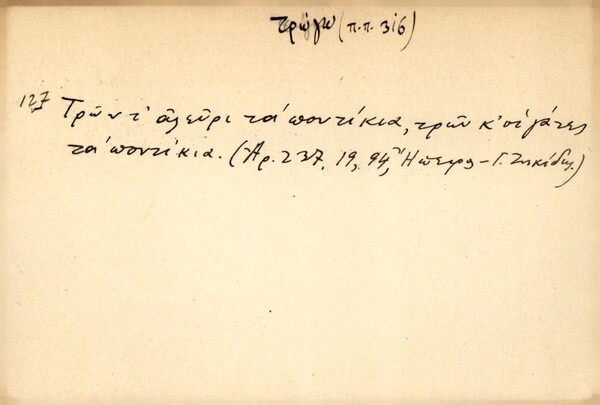 τρώγω (π.π. 316)
127 Τρῶν τ' ἀλεῦρι τα' ποντίκια, τρῶν κ' οἱ γάτες
τα' ποντίκια. (Ἀρ. 237, 19, 94, Ἤπειρος - Γ. Ζηκίδης)